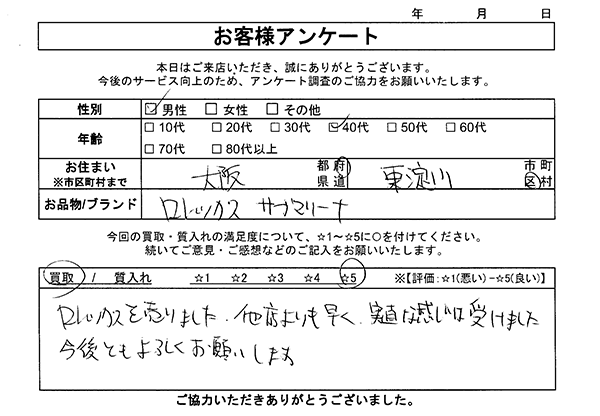 年 月 日
お客様アンケート
本日はご来店いただき、誠にありがとうございます。
今後のサービス向上のため、アンケート調査のご協力をお願いいたします。
性別 ☑男性 □女性 □その他
年齢 □10代 □20代 □30代 ☑40代 □50代 □60代
□70代 □80代以上
お住まい 大阪 都府 東淀川 市町
※市区町村まで 県道 区村
お品物/ブランド ロレックス サブマリーナ
今回の買取・質入れの満足度について、☆1～☆5に○を付けてください。
続いてご意見・ご感想などのご記入をお願いいたします。
買取 / 質入れ ☆1 ☆2 ☆3 ☆4 ☆5 ※【評価：☆1(悪い)－☆5(良い)】
ロレックスを売りました。他店よりも早く、実直な感いは受けました
今後ともよろしくお願いします
ご協力いただきありがとうございました。